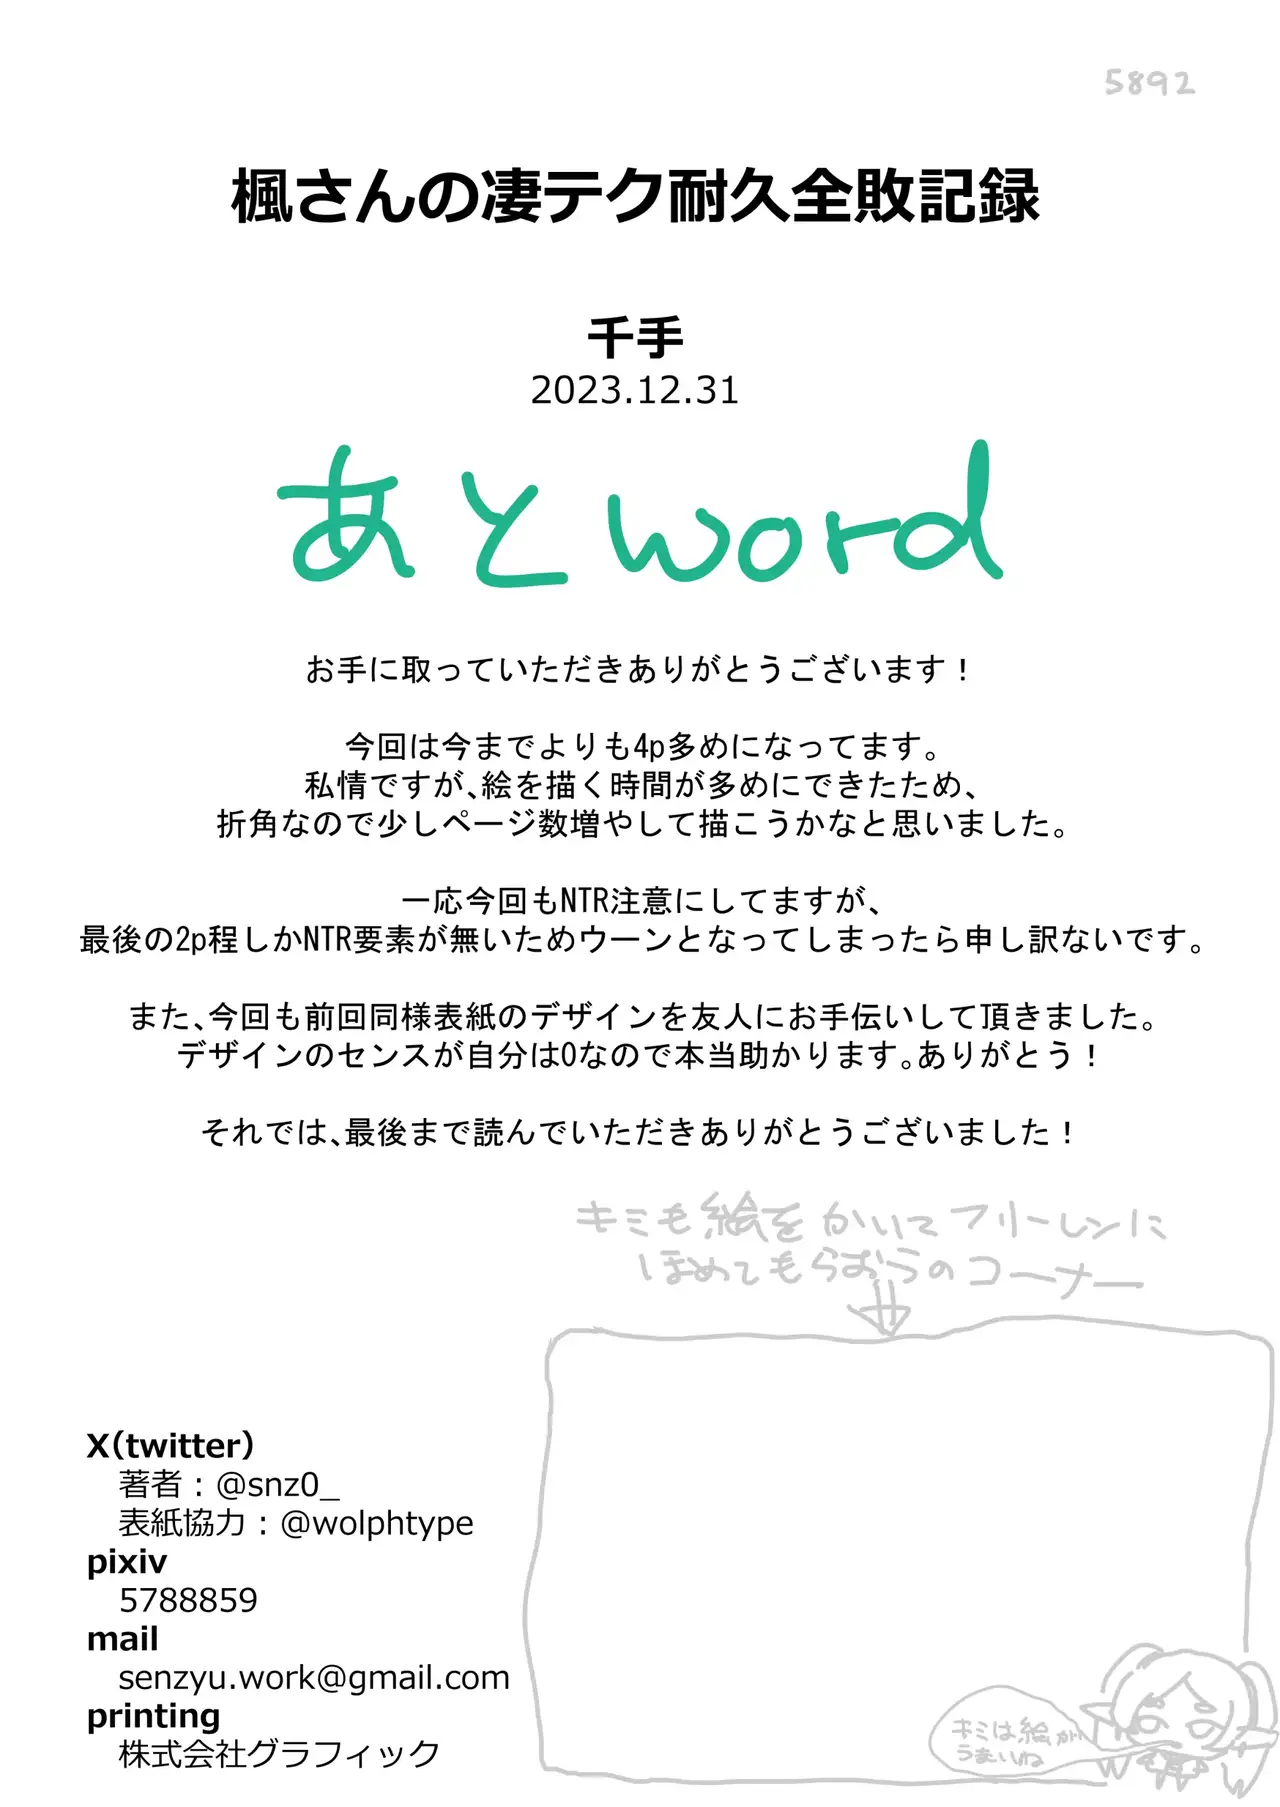 5892
楓さんの凄テク耐久全敗記録
千手
2023.12.31
あとword
お手に取っていただきありがとうございます！
今回は今までよりも4p多めになってます。
私情ですが、絵を描く時間が多めにできたため、
折角なので少しページ数増やして描こうかなと思いました。
一応今回もNTR注意にしてますが、
最後の2p程しかNTR要素が無いためウーンとなってしまったら申し訳ないです。
また、今回も前回同様表紙のデザインを友人にお手伝いして頂きました。
デザインのセンスが自分は0なので本当助かります。ありがとう！
それでは、最後まで読んでいただきありがとうございました！
キミも絵をかいてフリーレンに
ほめてもらおうのコーナー
X(twitter)
著者：@snz0_
表紙協力：@wolphtype
pixiv
5788859
mail
senzyu.work@gmail.com
printing
株式会社グラフィック
キミは絵が
うまいね